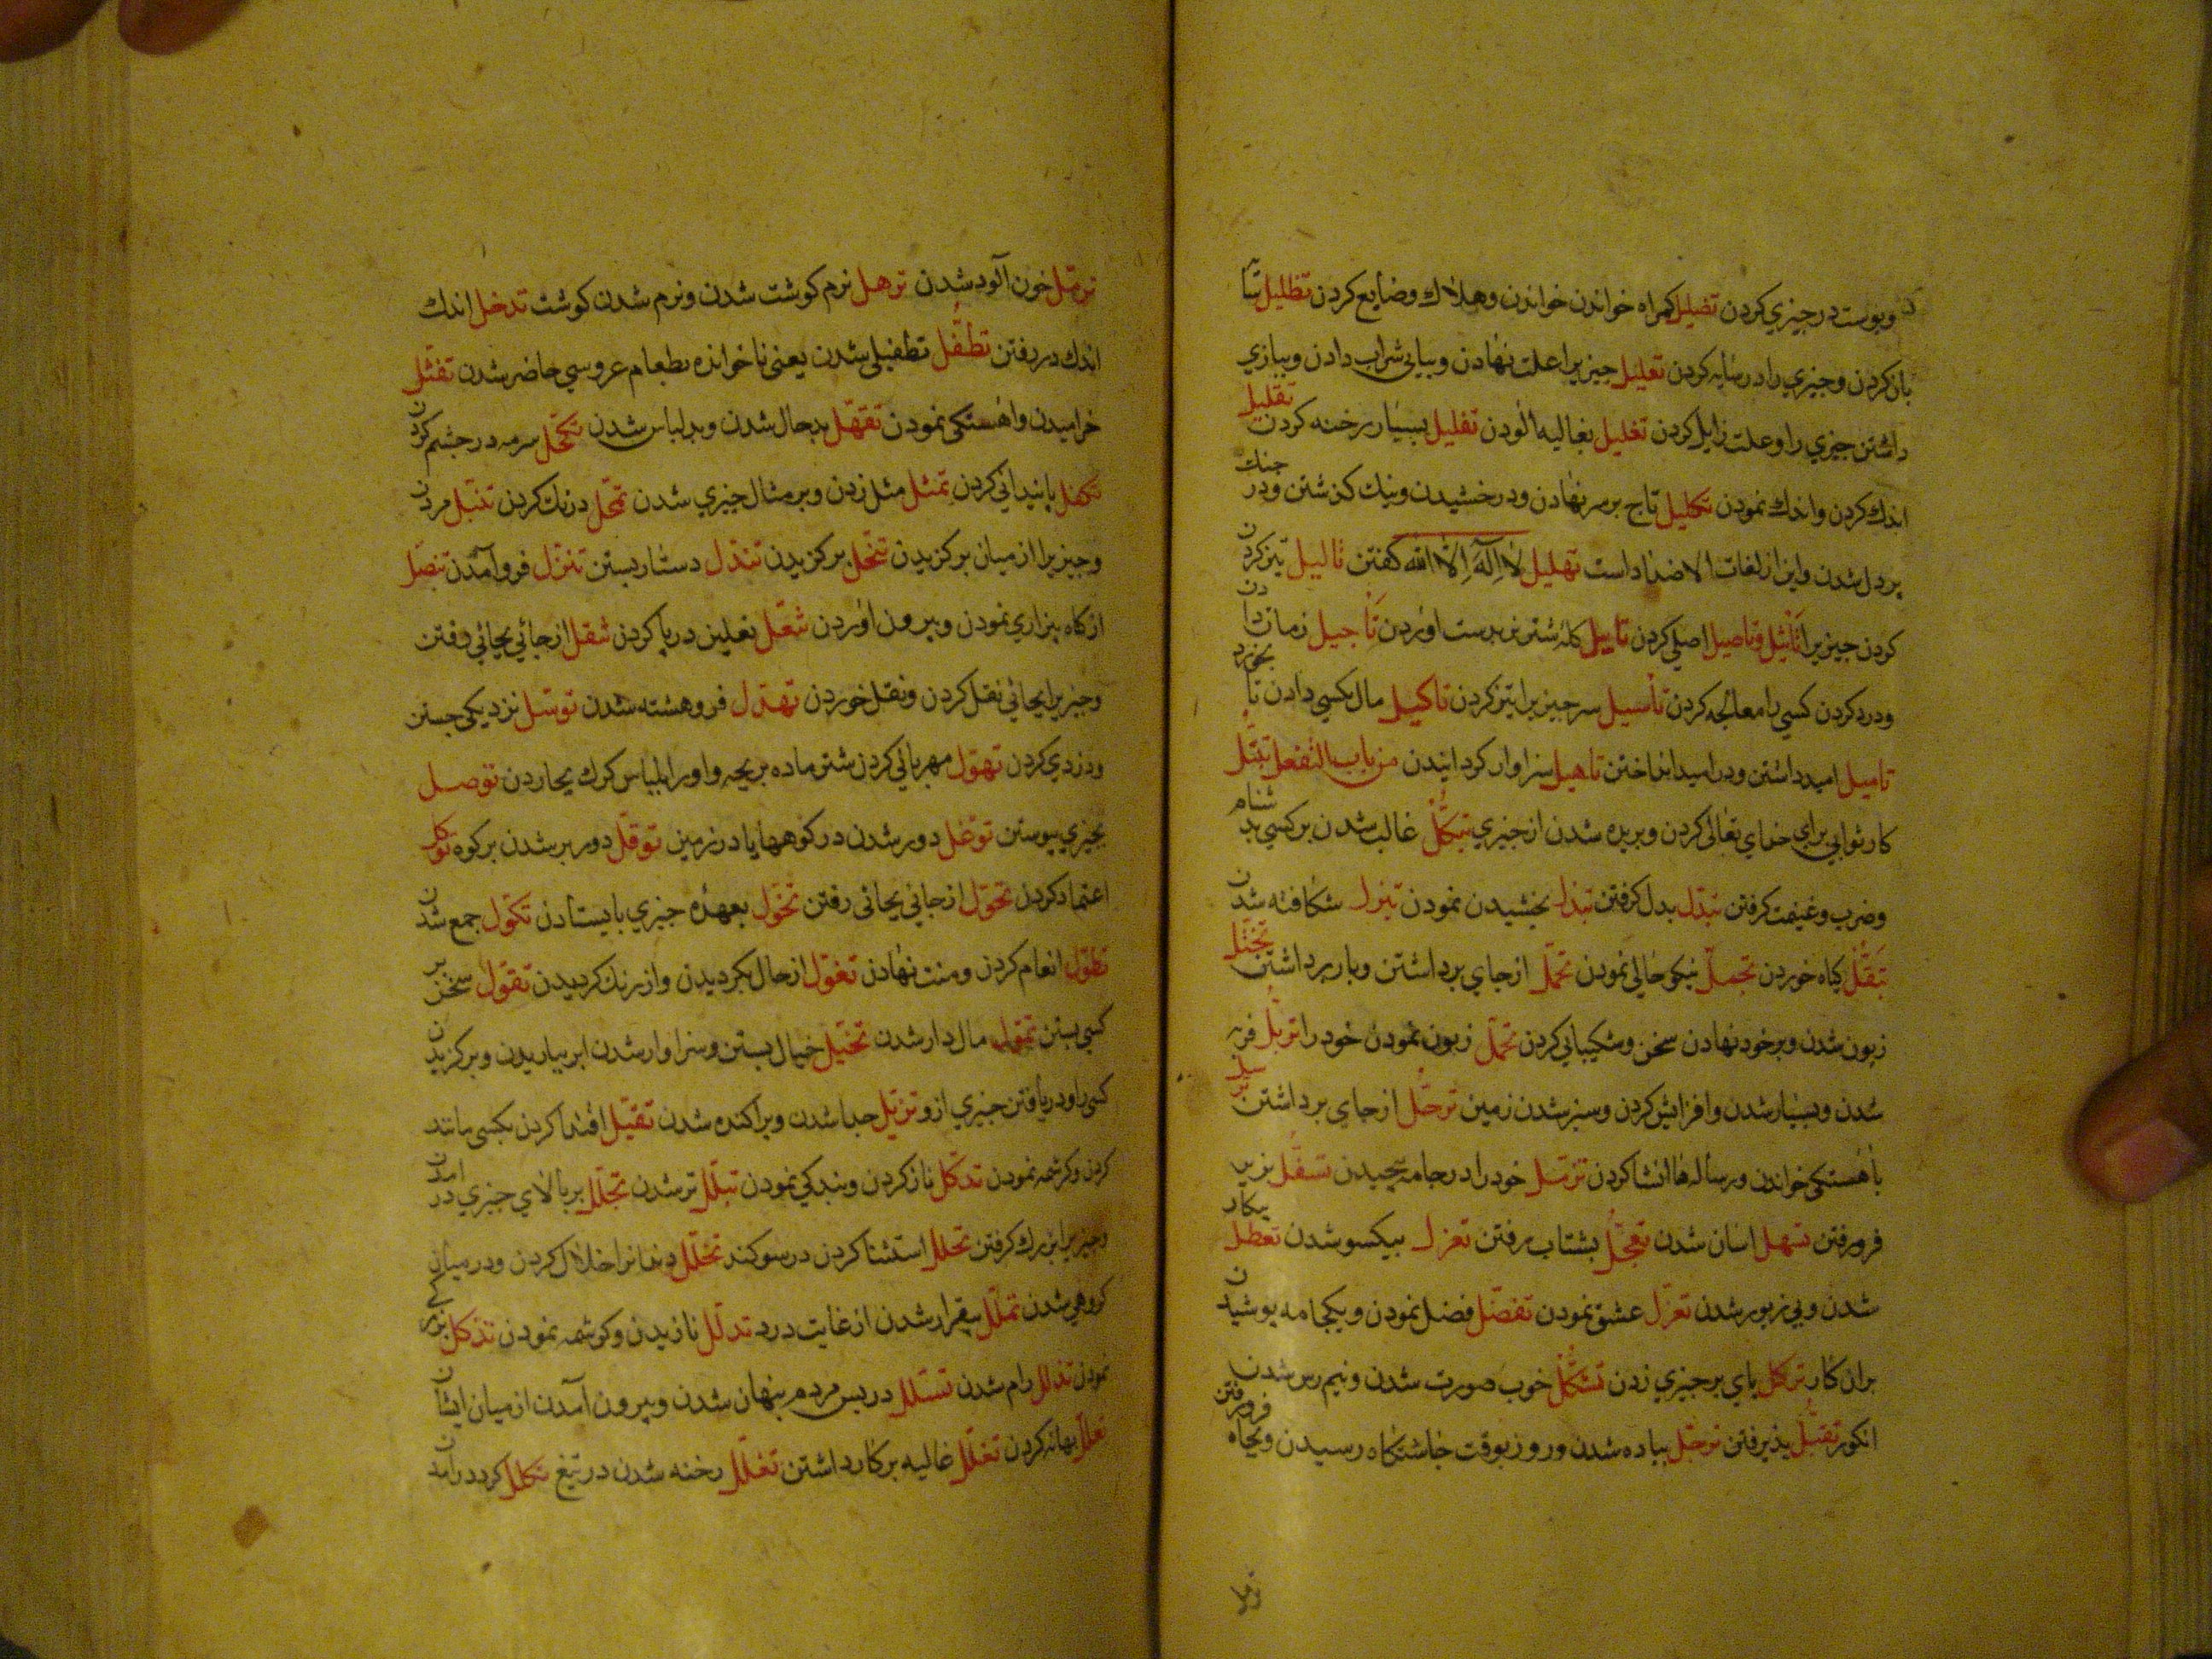 وپوست در جيزي كردن تضليل كمراه خواندن خواندن وهلاك وضايع كردن تظليل
باز كردن وجيزي را در سايه كردن تعليل جيزيرا علت نهادن وبيابي شراب دادن وببازي
داشتن جيزي را وعلت زايل كردن تغليل بغاليه آلودن تفليل بسيار رخنه كردن تقليل
اندك كردن واندك نمودن تكليل تاج بر سر نهادن ودرخشيدن ونيك كذشتن ودر جنك
بردل شدن واين از لغات الاضداد است تهليل لا اله الا الله كفتن تاليل تيز كردن
كردن جيزيرا تأثيل وتاصيل اصلي كردن تابيل كله شتر بدست اوردن تأجيل زمان دادن
ودرد كردن كسي را معالجه كردن تأسيل سر جيزيرا تيز كردن تاكيل مال بكسي دادن تا بخورد
تاميل اميد داشتن ودر اميد انداختن تاهيل سزاوار كردانيدن من باب التفعل تبتل
كار ثوابي براي خداي تعالى كردن وبريده شدن از جيزي تبكل غالب شدن بر كسي بدشنام
وضرب وغنيمت كرفتن تبدل بدل كرفتن تبذل بخشيدن نمودن تبزل شكافته شدن
تبقل كياه خوردن تجمل نيكو حالي نمودن تحمل از جاي برداشتن وبار برداشتن
زبون شدن وبر خود نهادن سخن وشكيبائي كردن تحمل زبون نمودن خود را تربل فربه
شدن وبسيار شدن وافزايش كردن وسبز شدن زمين ترحل از جاي برداشتن
باهستكي خواندن ورساله ها انشا كردن تزمل خود را در جامه پيچيدن تسفل بزير
فرو رفتن تسهل اسان شدن تعجل بشتاب رفتن تعزل بيكسو شدن تعطل بيكار
شدن وبي زيور شدن تغزل عشق نمودن تفضل فضل نمودن وبيكجامه پوشيدن
بران كار تركل پاي بر جيزي زدن تشكل خوب صورت شدن ونيم رس شدن
انكور تقبل پذيرفتن ترجل پياده شدن وروز بوقت چاشتكاه رسيدن وبچاه فرو رفتن
ترمل خون آلود شدن ترهل نرم كوشت شدن ونرم شدن كوشت تدخل اندك
اندك در رفتن تطفل تطفيلي شدن يعني ناخوانده بطعام عروسي حاضر شدن تفتل
خراميدن واهستكي نمودن تقهل بدحال شدن وبدلباس شدن تكحل سرمه در جشم كردن
تكفل پايندانى كردن تمثل مثل زدن وبر مثال جيزي شدن تمحل درنك كردن تنبل مردن
وجيزيرا از ميان بركزيدن تنخل بركزيدن تندل دستار بستن تنزل فرو آمدن تنصل
از كاه بيزاري نمودن وبيرون اوردن تنعل نعلين در پا كردن تنقل از جائي بجائي رفتن
وجيزيرا بجائي نقل كردن ونقل خوردن تهدل فرو هشته شدن توسل نزديكي جستن
ودزدي كردن تهول مهرباني كردن شتر ماده بر بچه واورا بلباس كرك بحاردن توصل
بجيزي پيوستن توغل دور شدن در كوهها يا در زمين توقل دور بر شدن بر كوه توكل
اعتماد كردن تحول از جائي بجائي رفتن تخول بعهده جيزي بايستادن تكول جمع شدن
تطول انعام كردن ومنت نهادن تغول از حال بكرديدن واز رنك كرديدن تقول سخن بر
كسي بستن تمول مال دار شدن تخيل خيال بستن وسزاوار شدن ابر بباريدن وبركزيدن
كسي را ودريافتن جيزي ازو تزيل جدا شدن وپراكنده شدن تقيل اقتدا كردن بكسي مانند
كردن وكرشمه نمودن تدكل ناز كردن وبندكي نمودن تبلل تر شدن تجلل بر بالاي جيزي در امدن
وجيزيرا بزرك كرفتن تحلل استثنا كردن در سوكند تخلل دندانرا خلال كردن ودر ميان
كروهي شدن تملل بيقرار شدن از غايت درد تدلل نازيدن وكرشمه نمودن تذكل
نمودن تذلل رام شدن تسلل در پس مردم پنهان شدن وبيرون آمدن از ميان ايشان
تعلل بهانه كردن تغلل غاليه بركار داشتن تفلل رخنه شدن در تيغ تكلل كرد در امدن